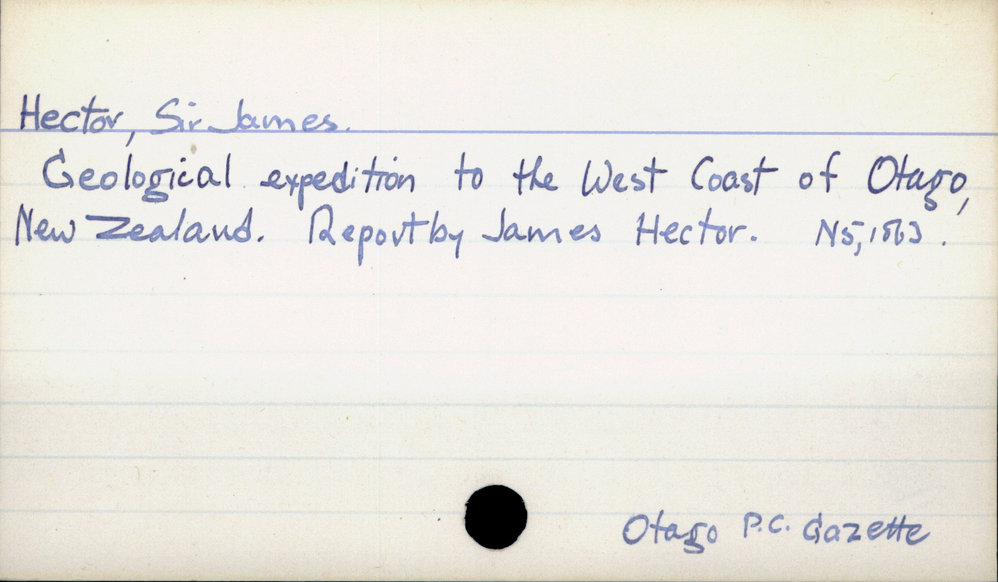 Hector, Sir James.
Geological expedition to the West Coast of Otago,
New Zealand. Report by James Hector. N5, 1863.
Otago P.C. Gazette